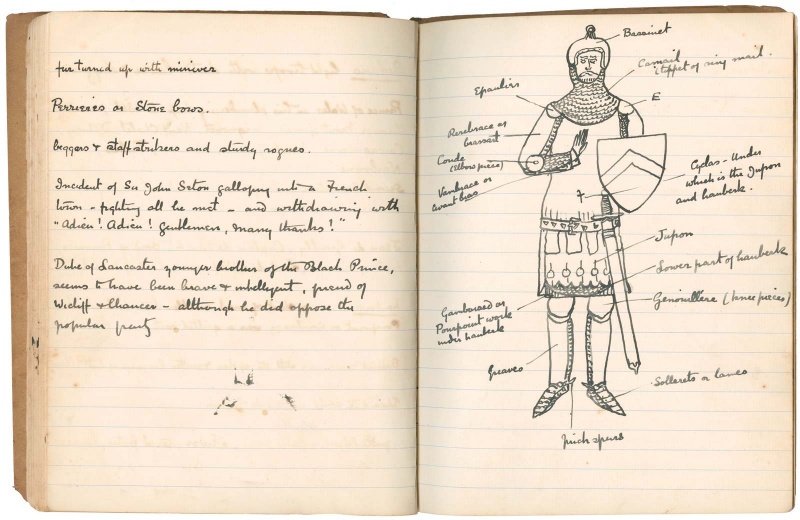 fur turned up with miniver
Perrieres or Stone bows.
beggars & staff strikers and sturdy rogues.
Incident of Sir John Seton galloping into a French
town - fighting all he met - and withdrawing with
"Adieu! Adieu! Gentlemen, many thanks!"
Duke of Lancaster younger brother of the Black Prince,
seems to have been brave & intelligent, friend of
Wicliff & Chaucer - although he did oppose the
popular party
Bassinet
Camail
tippet of ring mail.
Epauliers
E
Rerebrace or
brassart
Coude
(Elbow piece)
Vambrace or
avant bras
Cyclas - Under
which is the Jupon
and hauberk.
Jupon
Lower part of hauberk
Genouillère (knee pieces)
Gamboised or
Pourpoint work
under hauberk
Greaves
Sollerets or laines
Prick spurs